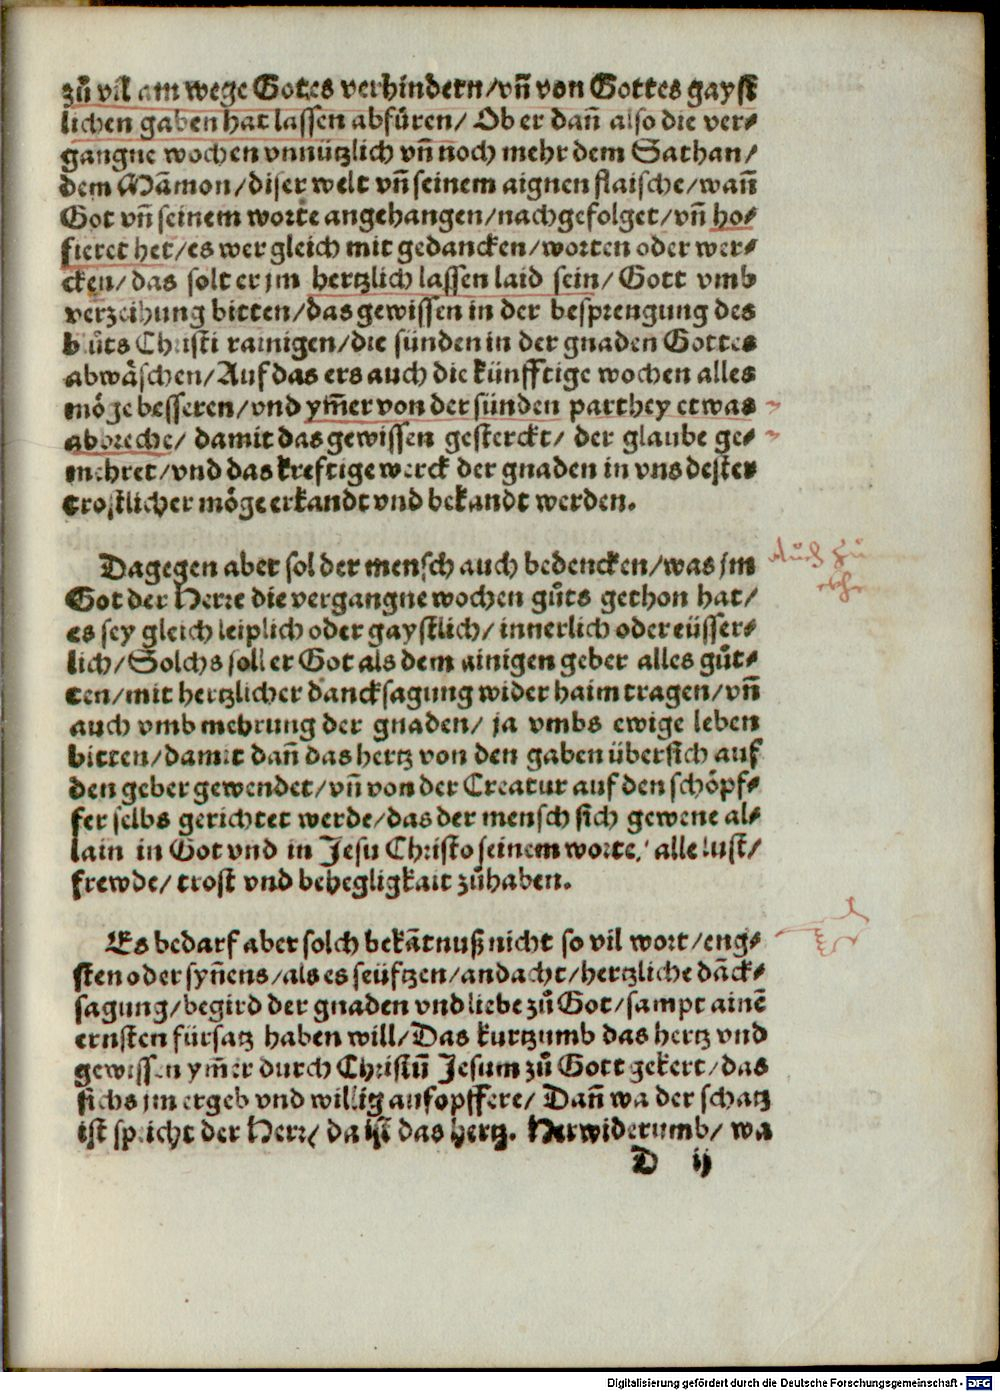 zů vil am wege Gotes verhindern/vñ von Gottes gayst
lichen gaben hat lassen abfüren/ Ob er dañ also die ver⸗
gangne wochen vnnützlich vñ noch mehr dem Sathan/
dem Mãmon/diser welt vñ seinem aignen flaische/wañ
Got vñ seinem worte angehangen/nachgefolget/vñ ho⸗
fieret het/es wer gleich mit gedancken/worten oder wer⸗
cken/das solt er jm hertzlich lassen laid sein/Gott vmb
verzeihung bitten/das gewissen in der besprengung des
blůts Christi rainigen/die sünden in der gnaden Gottes
abwäschen/Auf das ers auch die künfftige wochen alles
möge besseren/vnd ym̃er von der sünden parthey etwas
abbreche/ damit das gewissen gesterckt/ der glaube ge⸗
mehret/vnd das kreftige werck der gnaden in vns dester
trostlicher möge erkandt vnd bekandt werden.
Dagegen aber sol der mensch auch bedencken/was jm
Got der Herre die vergangne wochen gůts gethon hat/
es sey gleich leiplich oder gaystlich/innerlich oder eüsser⸗
lich/Solchs soll er Got als dem ainigen geber alles gůt⸗
ten/mit hertzlicher dancksagung wider haim tragen/vñ
auch vmb mehrung der gnaden/ ja vmbs ewige leben
bitten/damit dañ das hertz von den gaben übersich auf
den geber gewendet/vñ von der Creatur auf den schöpf⸗
fer selbs gerichtet werde/das der mensch sich gewene al⸗
lain in Got vnd in Jesu Christo seinem worte/ alle lust/
frewde/trost vnd behegligkait zůhaben.
Auch zu
Es bedarf aber solch bekãtnuß nicht so vil wort/eng⸗
sten oder syñens/als es seüftzen/andacht/hertzliche dãck⸗
sagung/begird der gnaden vnd liebe zů Got/sampt ainẽ
ernsten fürsatz haben will/Das kurtzumb das hertz vnd
gewissen ym̃er durch Christũ Jesum zů Gott gekert/das
sichs jm ergeb vnd willig aufopffere/ Dañ wa der schatz
ist spricht der Herr/ da ist das hertz. Herwiderumb/ wa
D ij
Digitalisierung gefördert durch die Deutsche Forschungsgemeinschaft - DFG